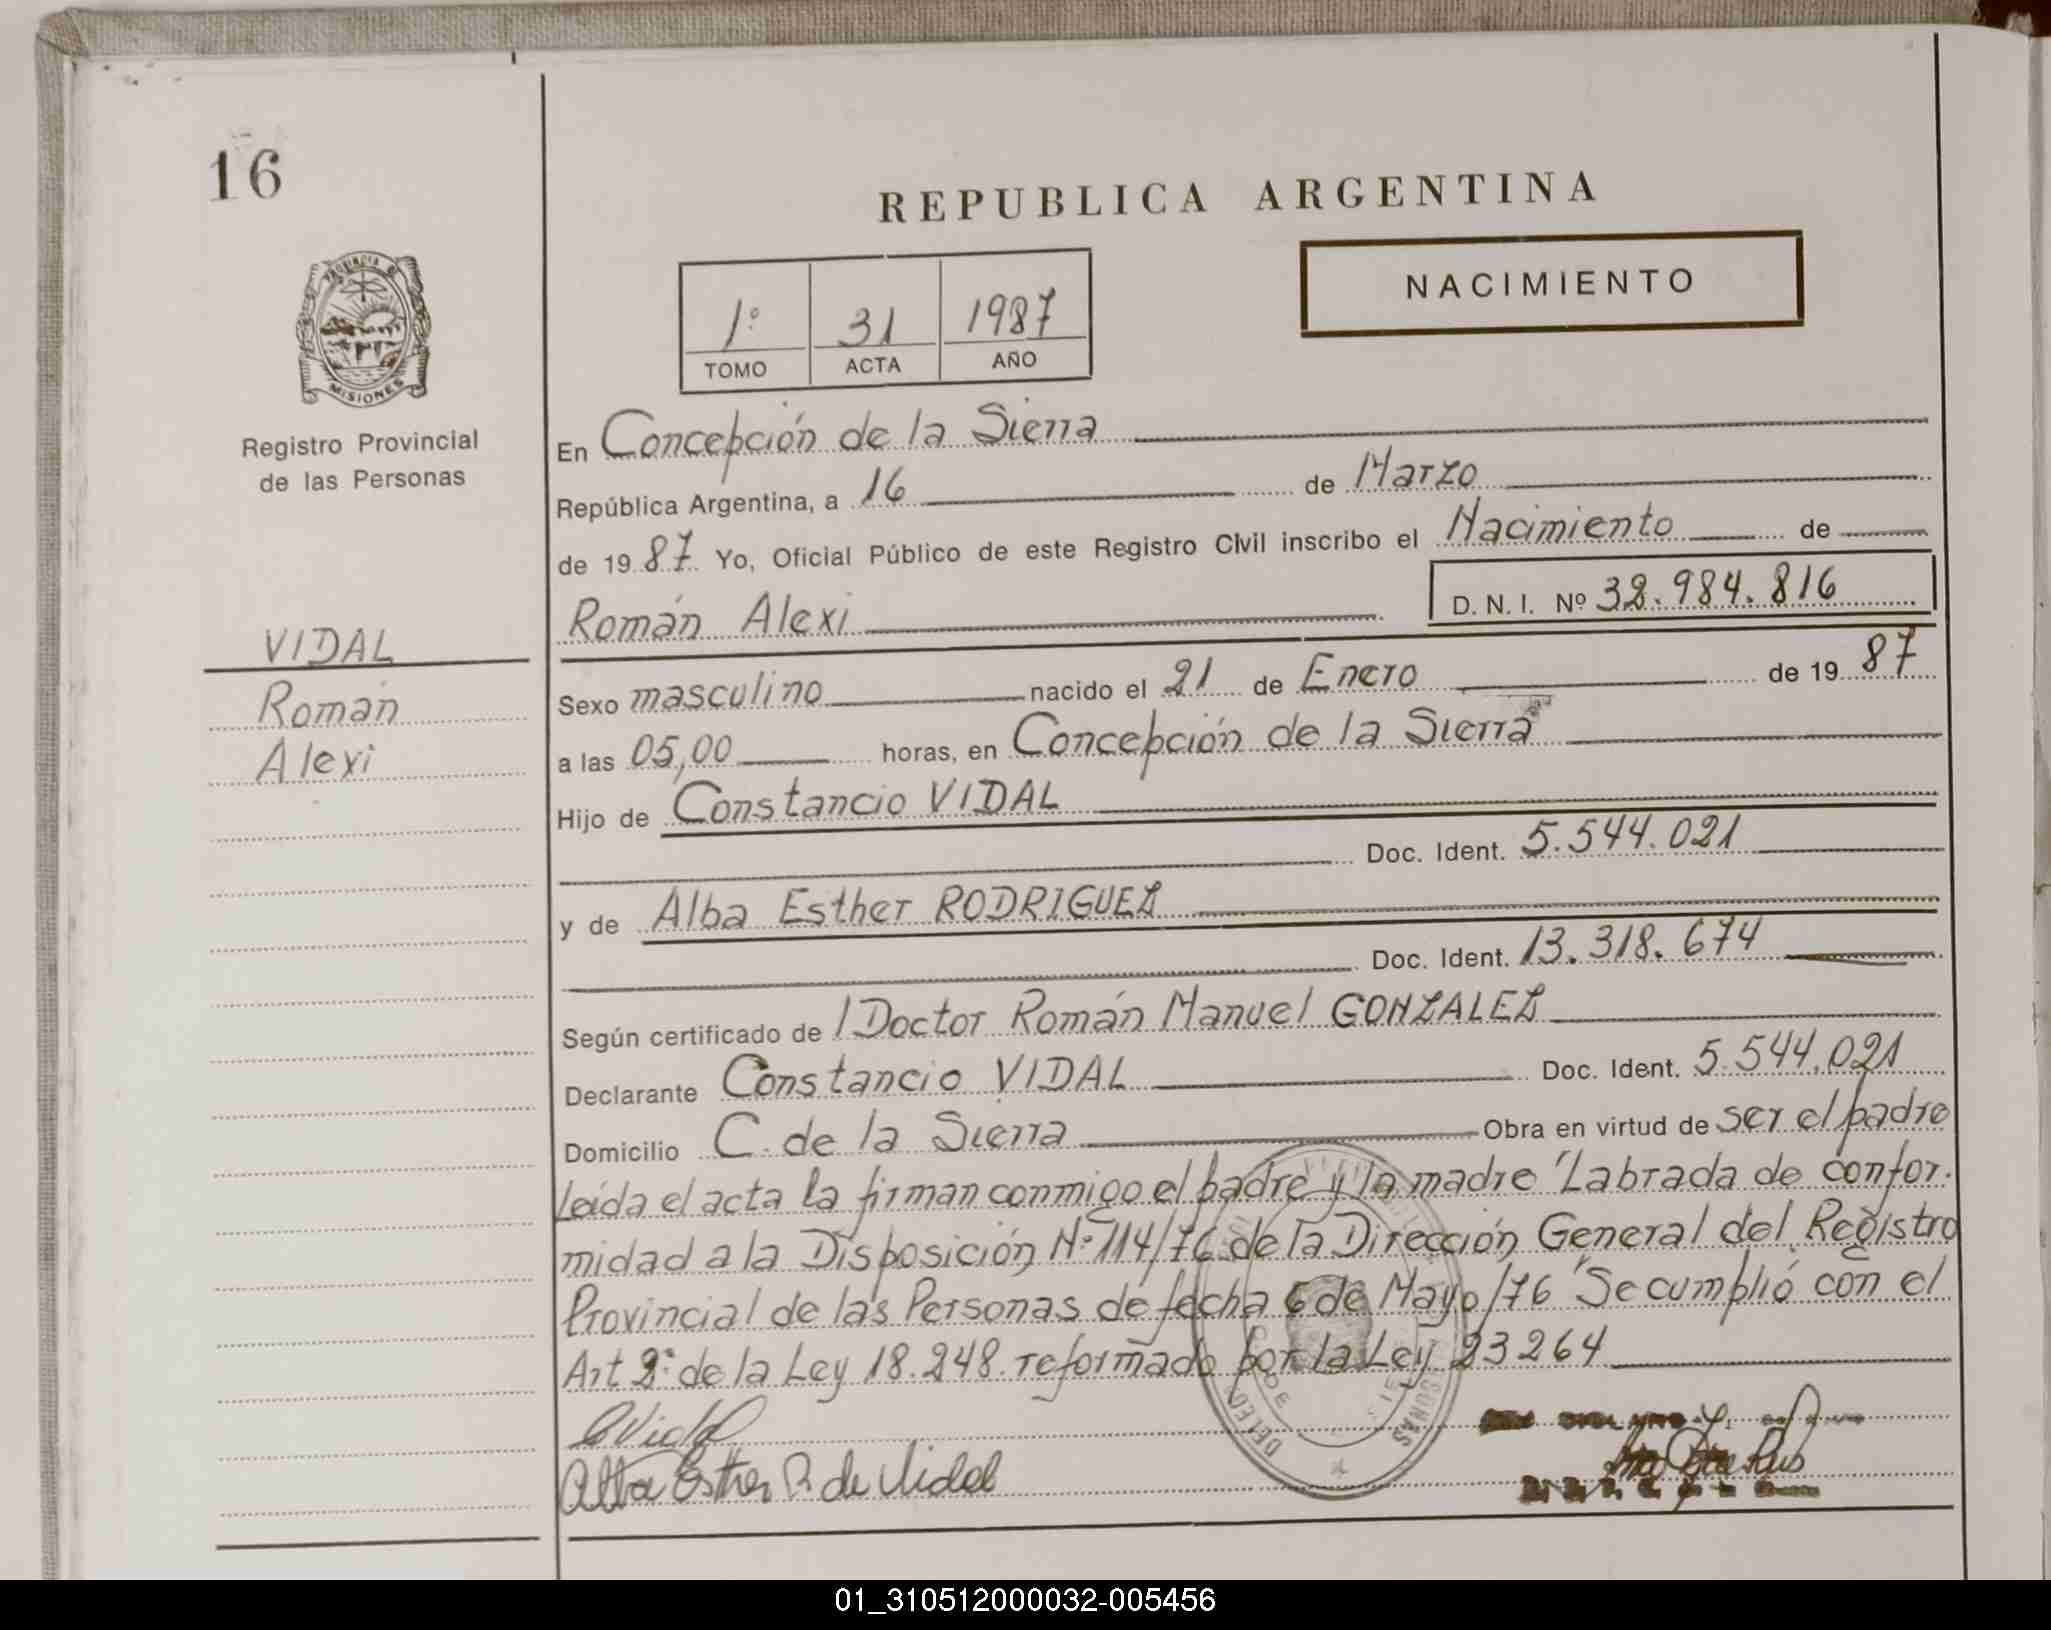 16
REPUBLICA ARGENTINA
NACIMIENTO
1º 31 1987
TOMO ACTA AÑO
PROVINCIA DE
MISIONES
Registro Provincial
de las Personas
En Concepción de la Sierra
República Argentina, a 16 de Marzo
de 19 87 Yo, Oficial Público de este Registro Civil inscribo el Nacimiento de
Román Alexi D. N. I. Nº 32.984.816
VIDAL
Román
Alexi
Sexo masculino nacido el 21 de Enero de 19 87
a las 05,00 horas, en Concepción de la Sierra
Hijo de Constancio VIDAL
Doc. Ident. 5.544.021
y de Alba Esther RODRIGUEZ
Doc. Ident. 13.318.674
Según certificado de l Doctor Román Manuel GONZALEZ
Declarante Constancio VIDAL Doc. Ident. 5.544.021
Domicilio C. de la Sierra Obra en virtud de ser el padre
Leída el acta la firman conmigo el padre y la madre "Labrada de confor-
midad a la Disposición Nº 114/76 de la Dirección General del Registro
Provincial de las Personas de fecha 6 de Mayo/76 "Se cumplió con el
Art 2º de la Ley 18.248. reformado por la Ley 23264
CVidal
Alba Esther R de Vidal
01_310512000032-005456